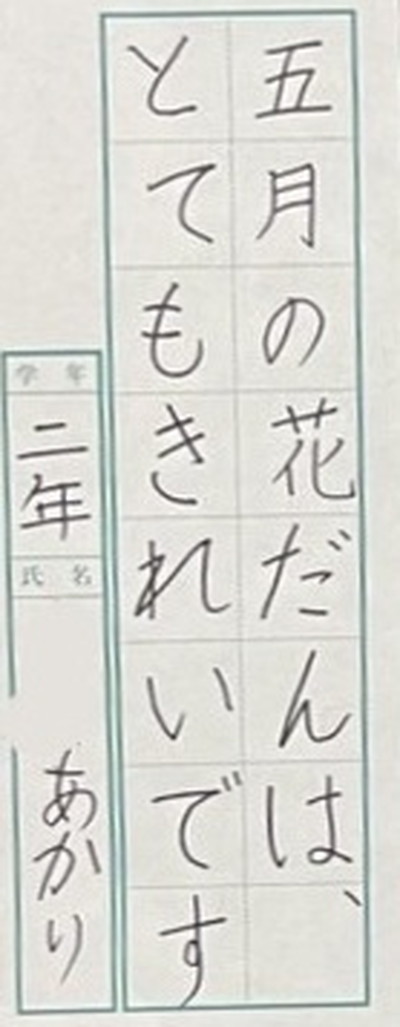 五月の花だんは、
とてもきれいです
学年
二年
氏名
あかり